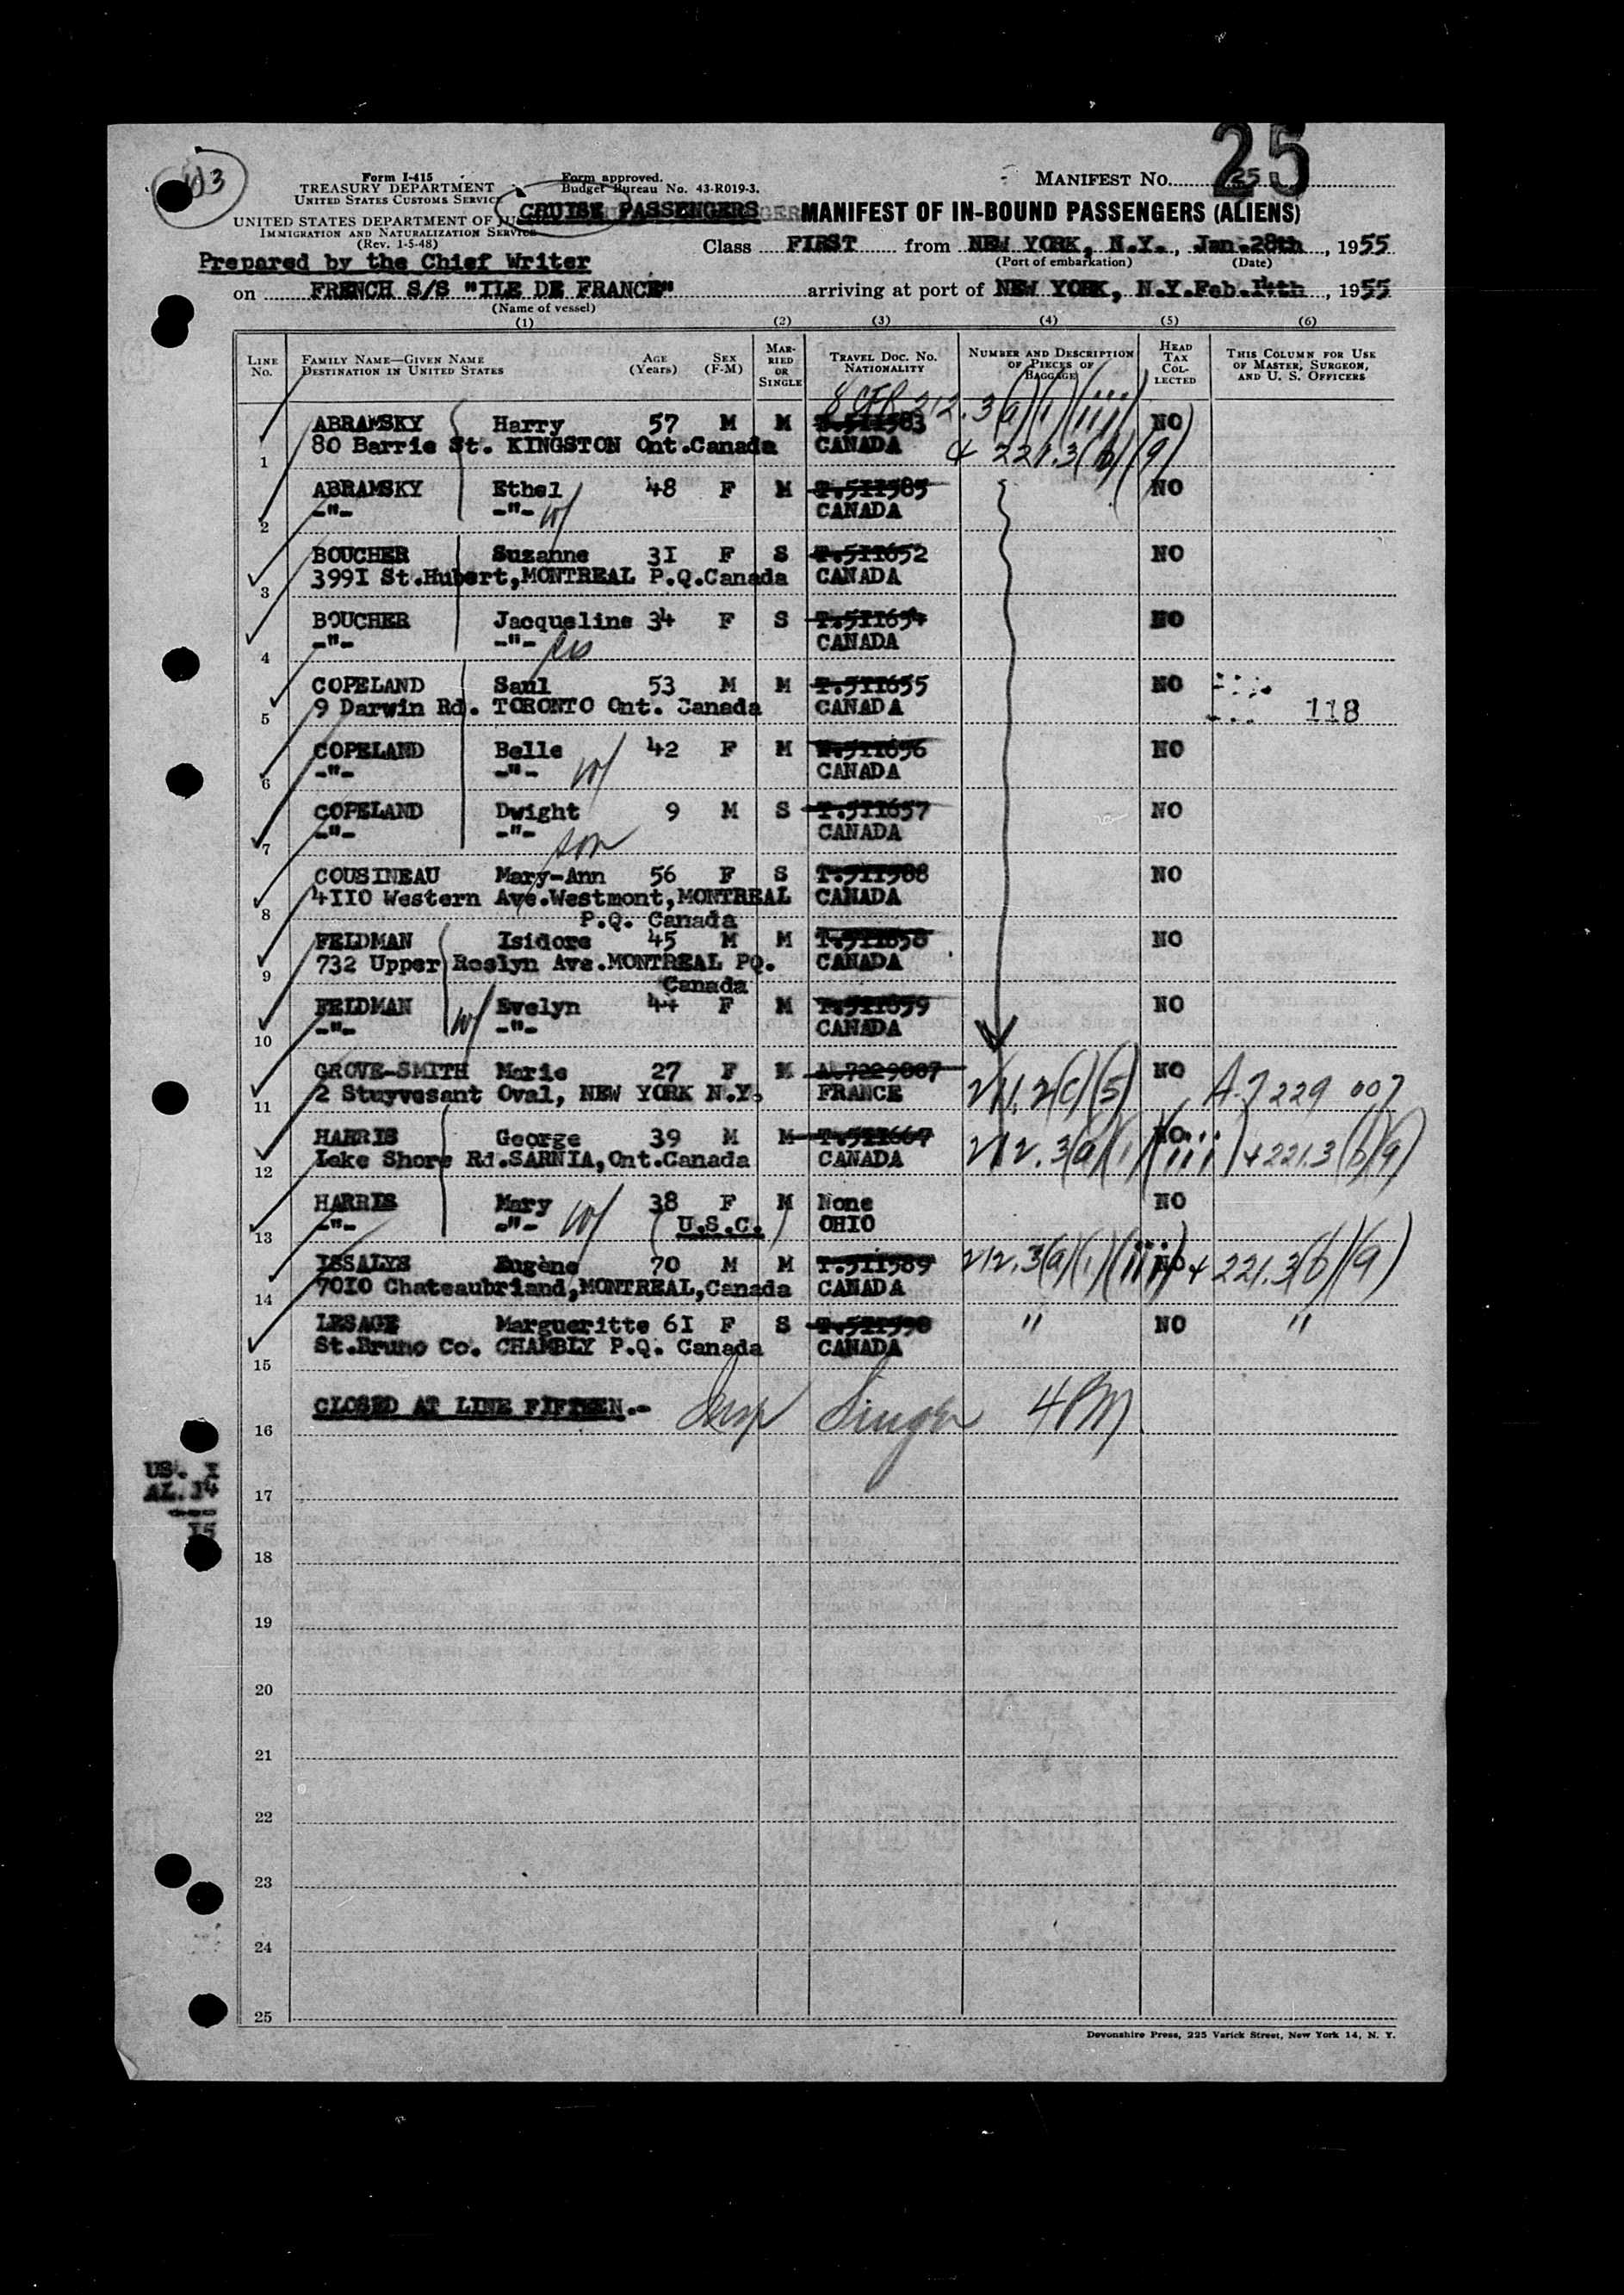 25
Form I-415
TREASURY DEPARTMENT
UNITED STATES CUSTOMS SERVICE
UNITED STATES DEPARTMENT OF JUSTICE
IMMIGRATION AND NATURALIZATION SERVICE
(Rev. 1-5-48)
Form approved.
Budget Bureau No. 43-R019-3.
MANIFEST No. 25
CRUISE PASSENGERS MANIFEST OF IN-BOUND PASSENGERS (ALIENS)
Class FIRST from NEW YORK, N.Y., Jan.28th, 1955
(Port of embarkation) (Date)
Prepared by the Chief Writer
on FRENCH S/S "ILE DE FRANCE" arriving at port of NEW YORK, N.Y.Feb.14th, 1955
(Name of vessel)
(1) (2) (3) (4) (5) (6)
LINE No.
FAMILY NAME—GIVEN NAME
DESTINATION IN UNITED STATES
AGE (Years)
SEX (F-M)
MARRIED OR SINGLE
TRAVEL DOC. NO. NATIONALITY
NUMBER AND DESCRIPTION OF PIECES OF BAGGAGE
HEAD TAX COLLECTED
THIS COLUMN FOR USE OF MASTER, SURGEON, AND U. S. OFFICERS
8 CFR 212.3(a)(1)(iii)
ABRAMSKY Harry 57 M M NO
1 80 Barrie St. KINGSTON Ont.Canada CANADA & 221.3(b)(9)
ABRAMSKY Ethel 48 F M T.511585 NO
2 -"- -"- W/ CANADA
BOUCHER Suzanne 3I F S T.511652 NO
3 399I St.Hubert,MONTREAL P.Q.Canada CANADA
BOUCHER Jacqueline 34 F S T.511654 NO
4 -"- -"- sis CANADA
COPELAND Saul 53 M M T.511655 NO
5 9 Darwin Rd. TORONTO Ont. Canada CANADA 118
COPELAND Belle 42 F M T.511656 NO
6 -"- -"- W/ CANADA
COPELAND Dwight 9 M S T.511657 NO
7 -"- -"- son CANADA
COUSINEAU Mary-Ann 56 F S T.511588 NO
8 4II0 Western Ave.Westmont,MONTREAL CANADA
P.Q. Canada
FELDMAN Isidore 45 M M T.511658 NO
9 732 Upper Roslyn Ave.MONTREAL PQ. CANADA
Canada
FELDMAN W/ Evelyn 44 F M T.511659 NO
10 -"- -"- CANADA
GROVE-SMITH Marie 27 F M A.7229007 NO
11 2 Stuyvesant Oval, NEW YORK N.Y. FRANCE 211.2(c)(5) A-7 229 007
HARRIS George 39 M M T.511667 NO
12 Lake Shore Rd.SARNIA,Ont.Canada CANADA 212.3(a)(1)(iii) & 221.3(b)(9)
HARRIS Mary 38 F M None NO
13 -"- -"- W/ (U.S.C.) OHIO
ISSALYS Eugène 70 M M T.511589 212.3(a)(1)(iii) NO & 221.3(b)(9)
14 70I0 Chateaubriand,MONTREAL,Canada CANADA
LESAGE Margueritte 6I F S T.511590 " NO "
15 St.Bruno Co. CHAMBLY P.Q. Canada CANADA
16 CLOSED AT LINE FIFTEEN.- Insp Singer 4PM
US. I
AL. I4
I5
17
18
19
20
21
22
23
24
25
Devonshire Press, 225 Varick Street, New York 14, N. Y.